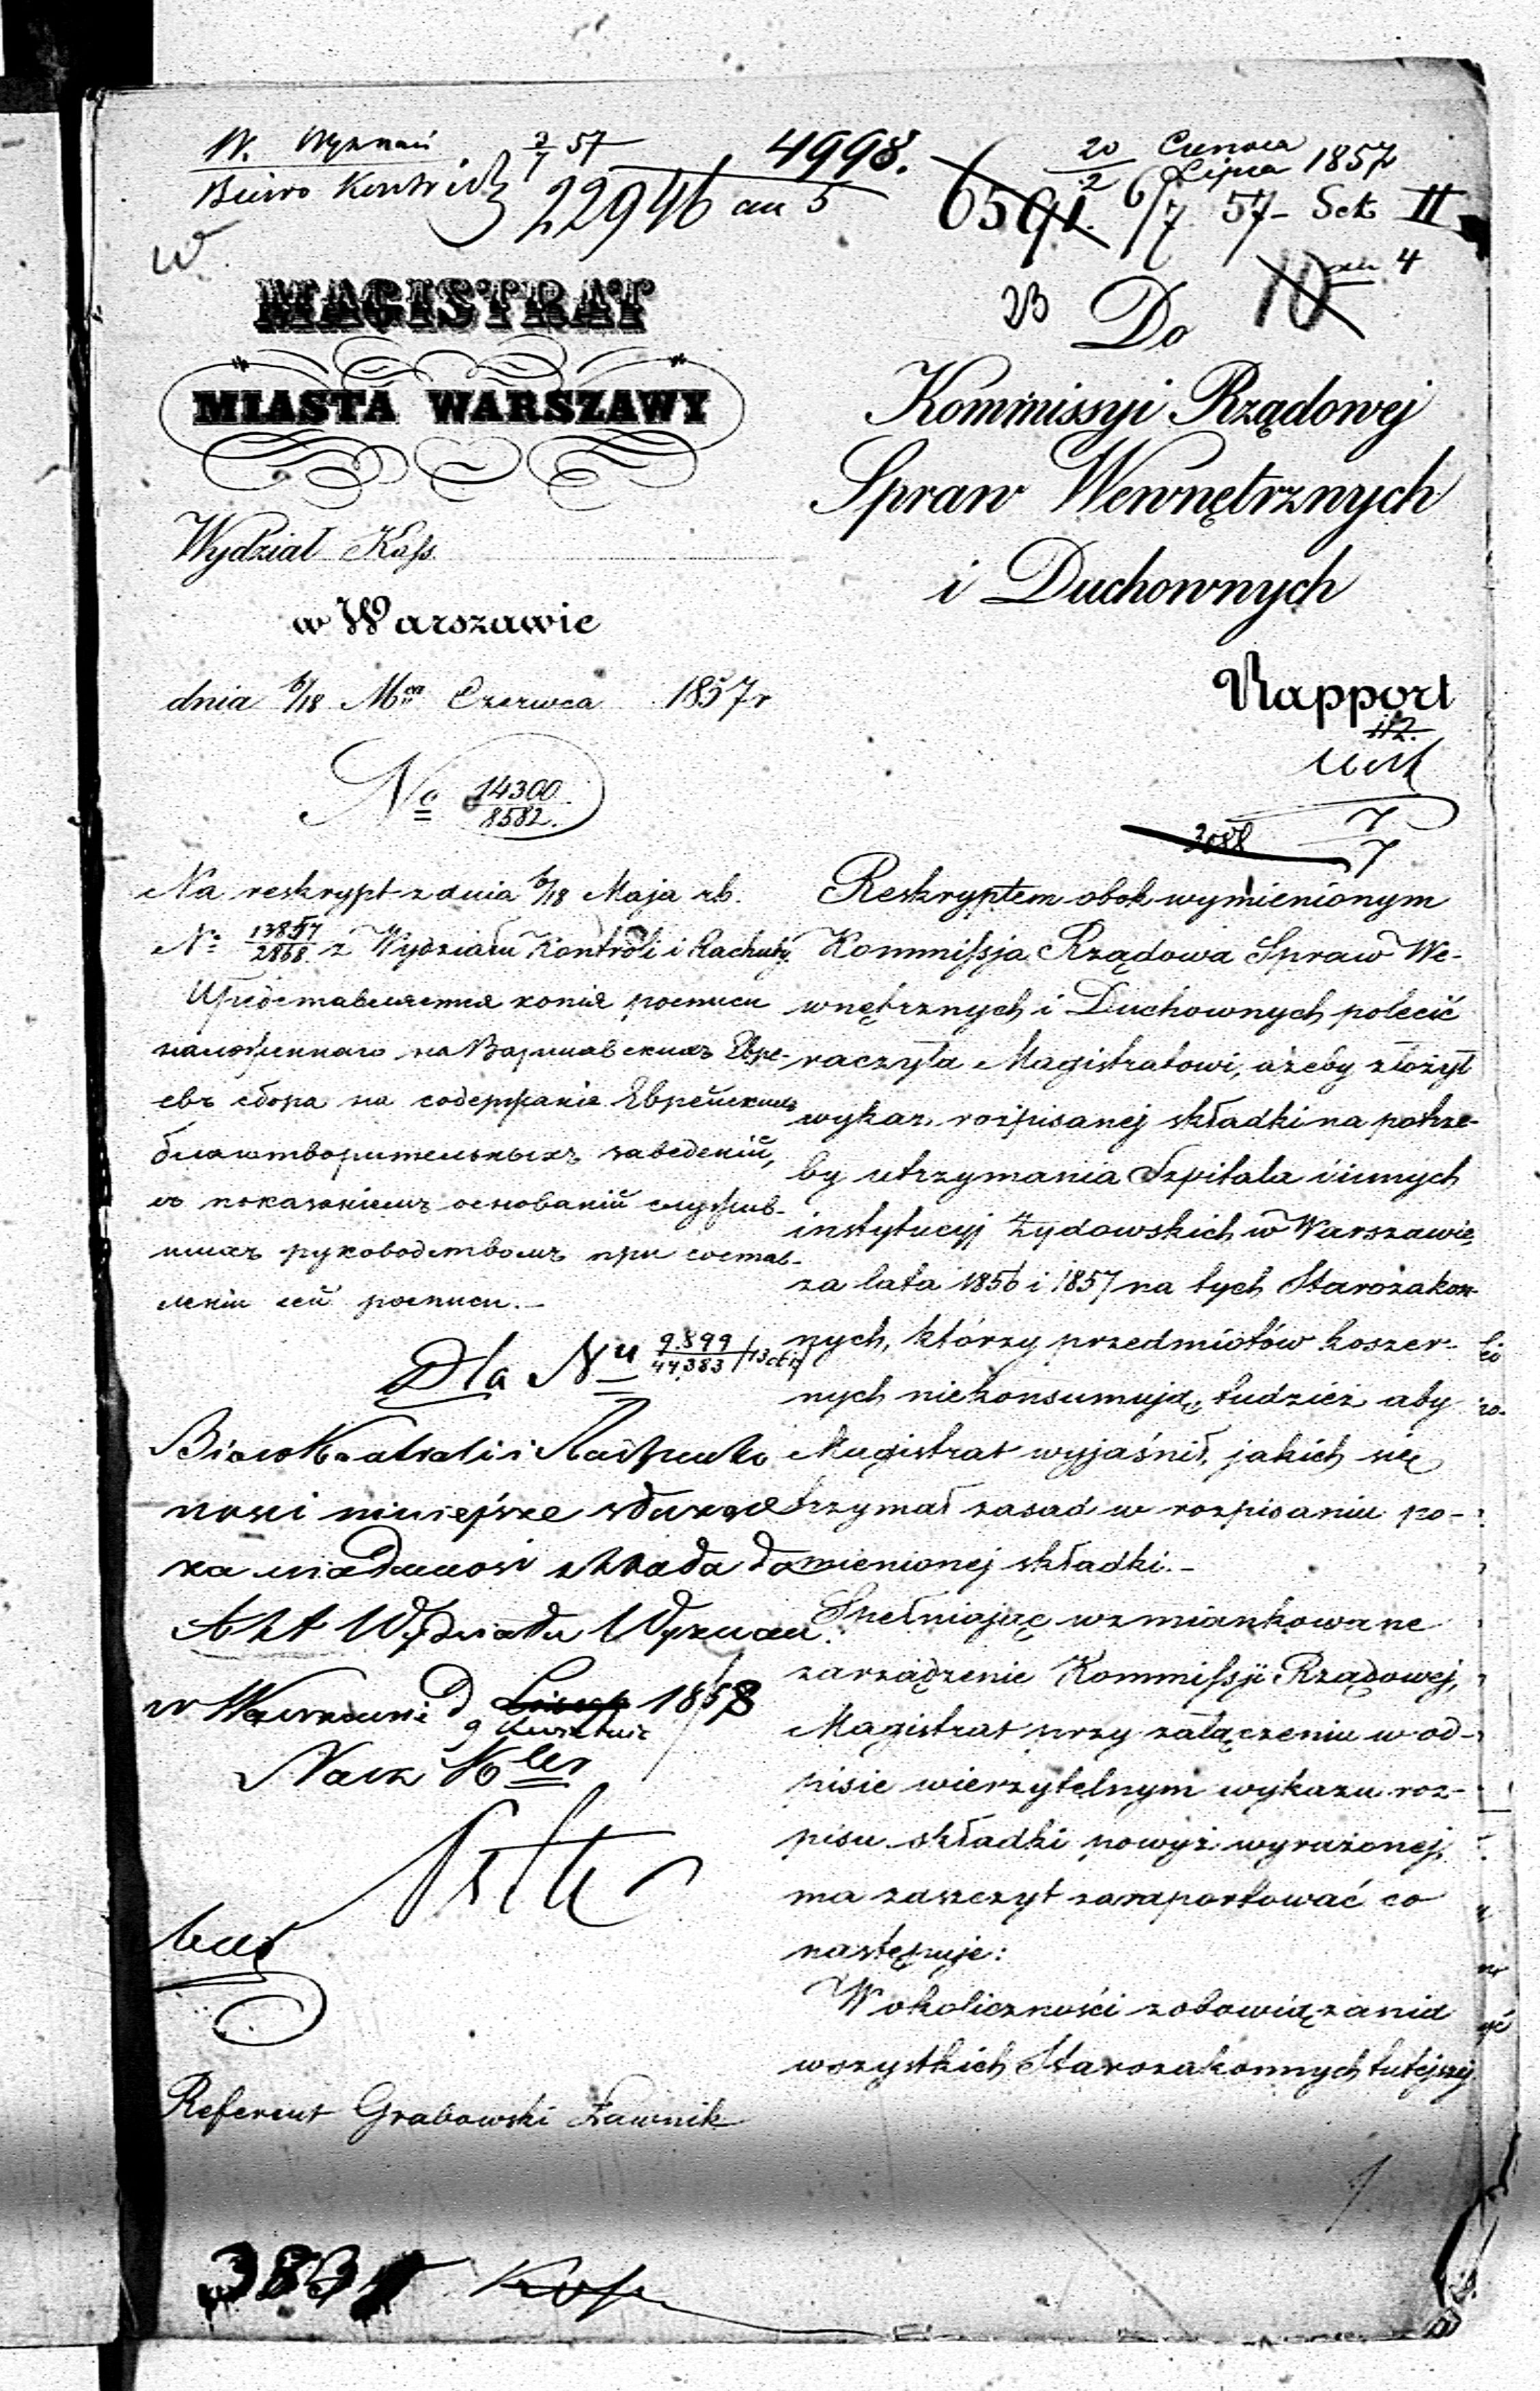 W. Wyznań
Biuro Kontroli
3/7 57
22946 an 5
4998.
20/2 Czerwca/Lipca 1857
6591. 6/7 57 - Sek II
10 4
23
MAGISTRAT
MIASTA WARSZAWY
Wydział Kass
w Warszawie
dnia 6/18 Mca Czerwca 1857 r
No 14300/8582.
Do
Kommissyi Rządowej
Spraw Wewnętrznych
i Duchownych
Rapport
112.
3088 7/7
Na reskrypt z dnia 6/18 Maja rb.
No 13857/2868 z Wydziału Kontroli i Rachuby.
Представляется копія росписи
наложеннаго на Варшавскихъ Евре-
евъ сбора на содержаніе Еврейскихъ
благотворительныхъ заведеній,
съ показаніемъ основаній служив-
шихъ руководствомъ при состав-
леніи сей росписи.-
Dla Nu 9899/44383
Biuro Kontroli i Rachunko
wości niniejsze
za wiadomość składa do
Akt Wydziału Wyznań.
w Warszawie d 9 Kwietnia 1858
Nacz
Referent Grabowski Ławnik
Reskryptem obok wymienionym
Kommissja Rządowa Spraw We-
wnętrznych i Duchownych polecić
raczyła Magistratowi, ażeby złożył
wykaz rozpisanej składki na potrze-
by utrzymania Szpitala i innych
instytucyj Żydowskich w Warszawie,
za lata 1856 i 1857 na tych Starozakon-
nych, którzy przedmiotów koszer-
nych niekonsumują, tudzież aby
Magistrat wyjaśnił, jakich się
trzymał zasad w rozpisaniu po-
mienionej składki.-
Spełniając wzmiankowane
zarządzenie Kommissji Rządowej,
Magistrat przy załączeniu w od-
pisie wierzytelnym wykazu roz-
pisu składki powyż wyrażonej,
ma zaszczyt zaraportować co
następuje:
W okoliczności zobowiązania
wszystkich Starozakonnych tutejszej